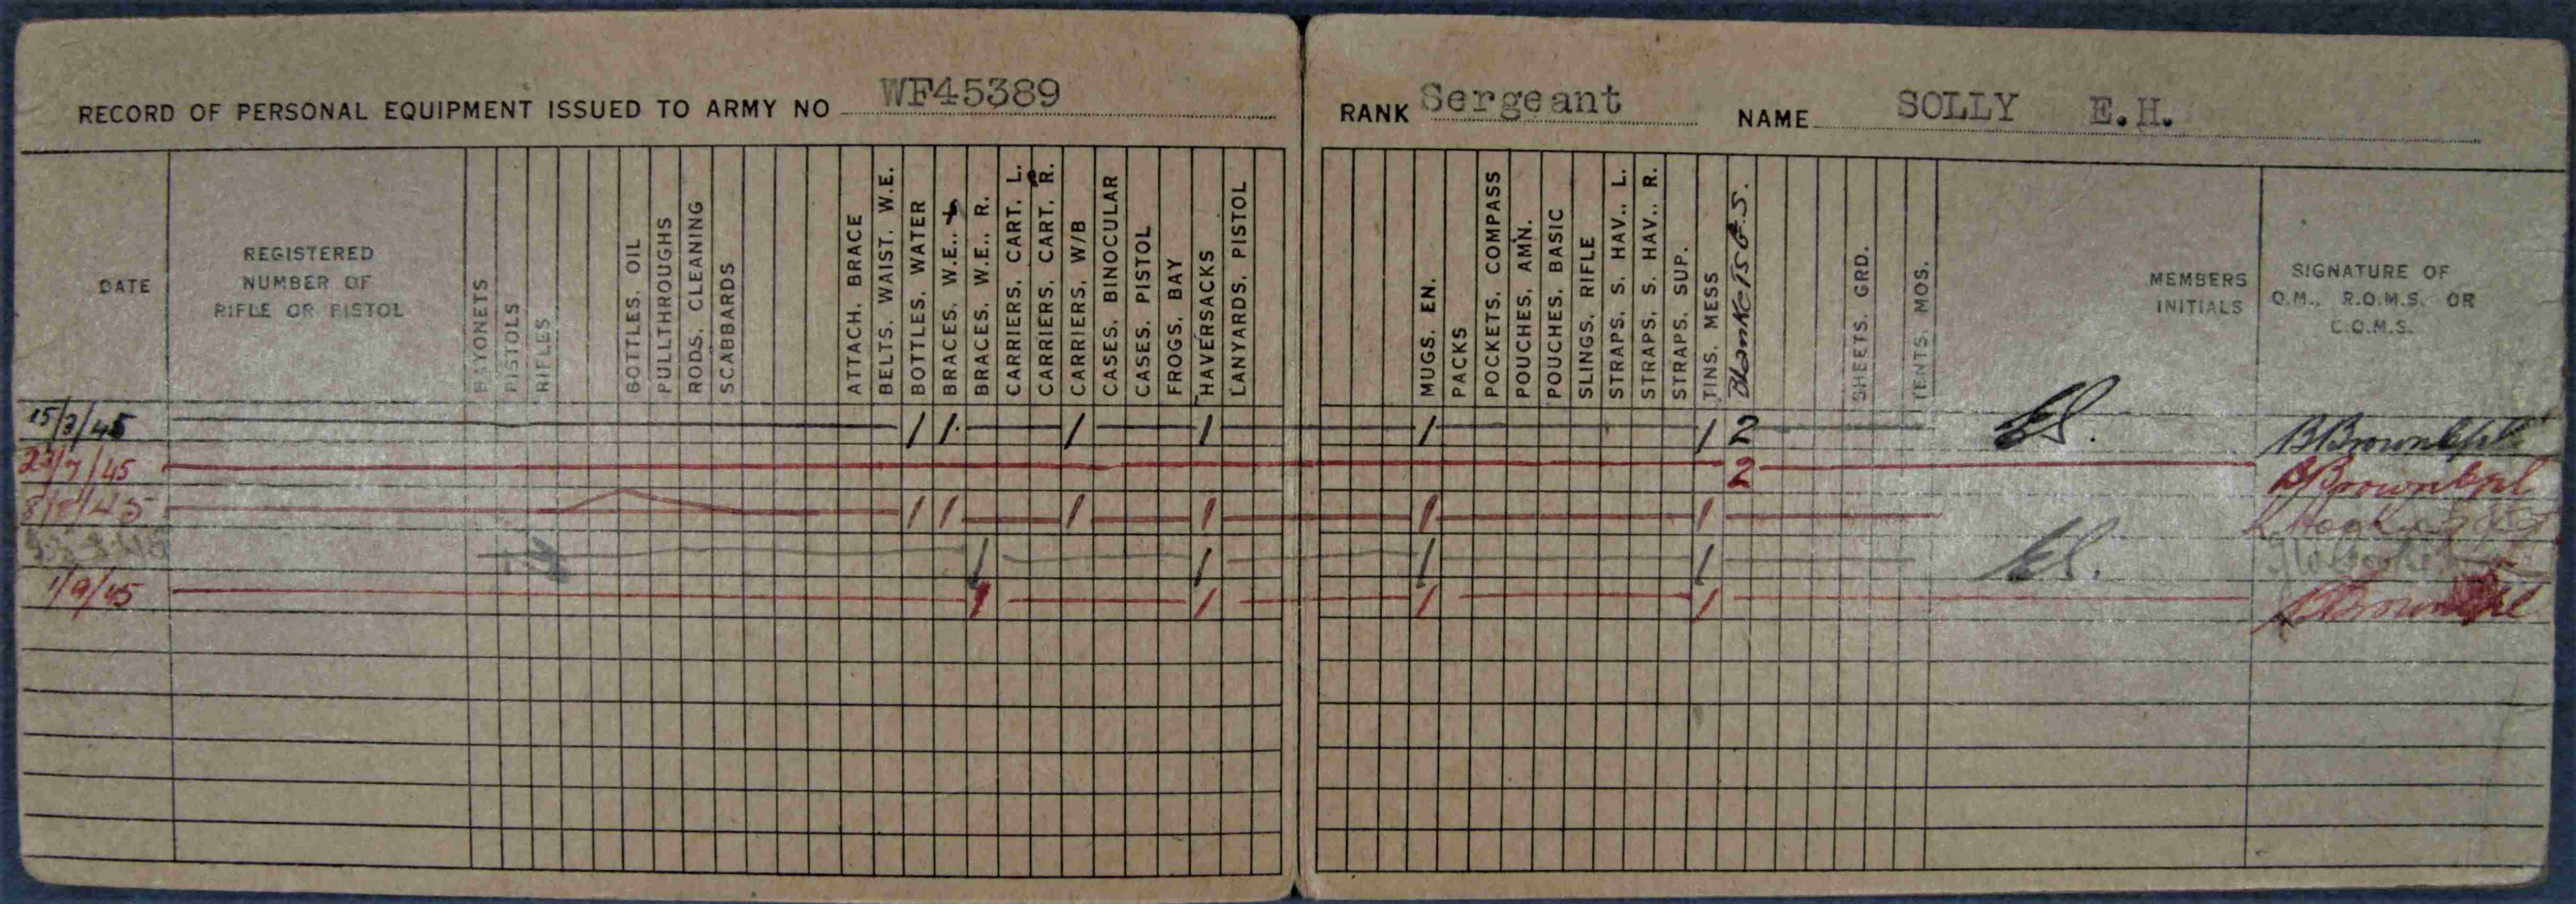 RECORD OF PERSONAL EQUIPMENT ISSUED TO ARMY NO WF45389 RANK Sergeant NAME SOLLY E.H.
DATE
REGISTERED
NUMBER OF
RIFLE OR PISTOL
BAYONETS
PISTOLS
RIFLES
BOTTLES, OIL
PULLTHROUGHS
RODS, CLEANING
SCABBARDS
ATTACH. BRACE
BELTS. WAIST. W.E.
BOTTLES. WATER
BRACES. W.E..
BRACES. W.E.. R.
CARRIERS. CART. L.
CARRIERS. CART. R.
CARRIERS. W/B
CASES. BINOCULAR
CASES. PISTOL
FROGS. BAY
HAVERSACKS
LANYARDS. PISTOL
MUGS. EN.
PACKS
POCKETS. COMPASS
POUCHES. AMN.
POUCHES. BASIC
SLINGS. RIFLE
STRAPS. S. HAV.. L.
STRAPS. S. HAV.. R.
STRAPS. SUP.
TINS. MESS
Blankets G.S.
SHEETS. GRD.
TENTS. MOS.
MEMBERS
INITIALS
SIGNATURE OF
Q.M.. R.Q.M.S. OR
C.Q.M.S.
15/3/45 1 1 1 1 1 1 2 ES. B Brown Cpl
/7/45 2 B Brown Cpl
1 1 1 1 1 1
1 1 1 1 ES.
1/9/45 1 1 1 1 B Brown Cpl